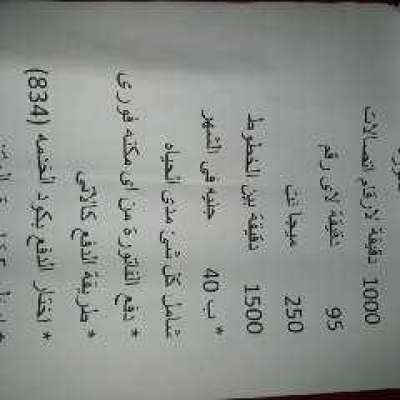 1000 دقيقة لارقام اتصالات
95 دقيقة لاى رقم
250 ميجا نت
1500 دقيقة بين الخطوط
* ب 40 جنيه فى الشهر
شامل كل شئ مدى الحياه
* دفع الفاتورة من اى مكنه فورى
* طريقة الدفع كالاتى
* اختار الدفع بكود الخدمه (834)